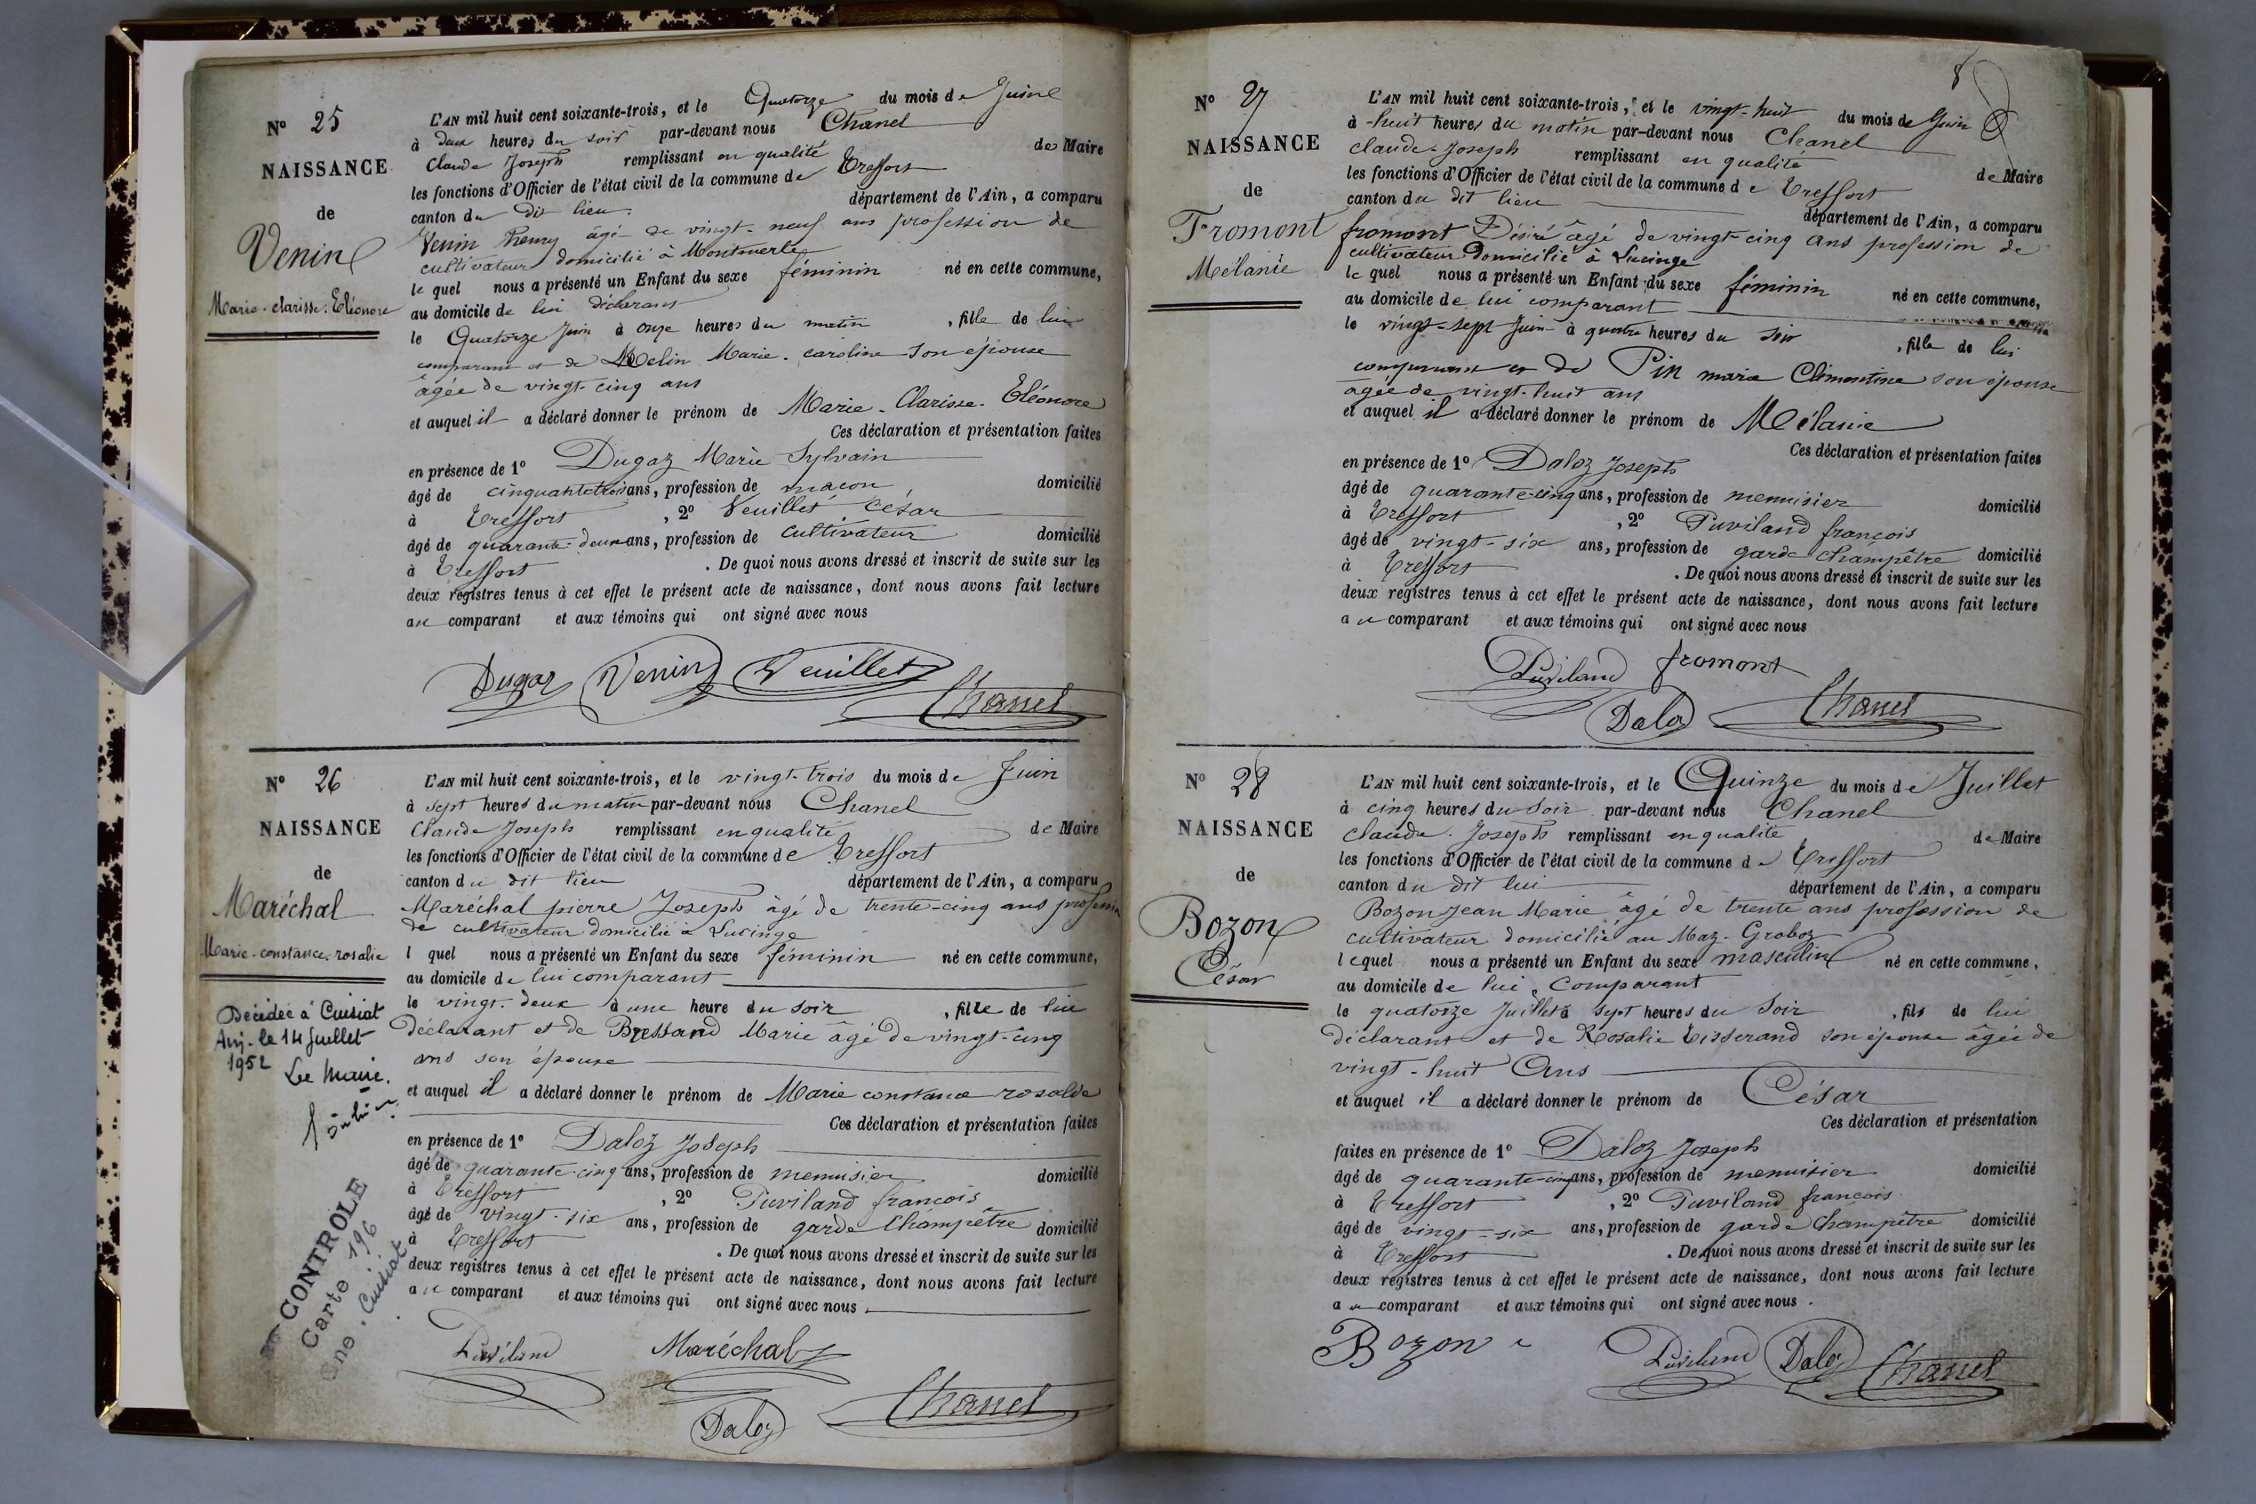 N° 25
NAISSANCE
de
Venin
Marie-clarisse-Eléonore
L'AN mil huit cent soixante-trois, et le Quatorze du mois de Juin
à deux heures du soir par-devant nous Chanel
Claude Joseph remplissant en qualité de Maire
les fonctions d'Officier de l'état civil de la commune de Treffort
canton du dit lieu département de l'Ain, a comparu
Venin henry âgé de vingt-neuf ans profession de
cultivateur domicilié à Montmerle
le quel nous a présenté un Enfant du sexe féminin né en cette commune,
au domicile de lui déclarant
le Quatorze Juin à onze heures du matin, fille de lui
comparant et de Melin Marie-caroline son épouse
âgée de vingt-cinq ans
et auquel il a déclaré donner le prénom de Marie-Clarisse-Eléonore
Ces déclaration et présentation faites
en présence de 1° Dugaz Marie Sylvain
âgé de cinquante trois ans, profession de macon domicilié
à Treffort, 2° Veuillet César
âgé de quarante-deux ans, profession de cultivateur domicilié
à Treffort. De quoi nous avons dressé et inscrit de suite sur les
deux registres tenus à cet effet le présent acte de naissance, dont nous avons fait lecture
au comparant et aux témoins qui ont signé avec nous
Dugaz Venin Veuillet
Chanel
N° 26
NAISSANCE
de
Maréchal
Marie-constance-rosalie
Décédée à Cuisiat
Ain, le 14 Juillet
1952
Le Maire.
CONTROLE
Carte 196
Cne. Cuisiat
L'AN mil huit cent soixante-trois, et le vingt-trois du mois de Juin
à sept heures du matin par-devant nous Chanel
Claude Joseph remplissant en qualité de Maire
les fonctions d'Officier de l'état civil de la commune de Treffort
canton du dit lieu département de l'Ain, a comparu
Maréchal pierre Joseph âgé de trente-cinq ans profession
de cultivateur domicilié à Lucinge
l quel nous a présenté un Enfant du sexe féminin né en cette commune,
au domicile de lui comparant
le vingt-deux à une heure du soir, fille de lui
déclarant et de Bressand Marie âgé de vingt-cinq
ans son épouse
et auquel il a déclaré donner le prénom de Marie constance rosalie
Ces déclaration et présentation faites
en présence de 1° Daloz Joseph
âgé de quarante-cinq ans, profession de menuisier domicilié
à Treffort, 2° Puviland françois
âgé de vingt-six ans, profession de garde Champêtre domicilié
à Treffort. De quoi nous avons dressé et inscrit de suite sur les
deux registres tenus à cet effet le présent acte de naissance, dont nous avons fait lecture
au comparant et aux témoins qui ont signé avec nous.
Puviland Maréchal
Daloz Chanel
8
N° 27
NAISSANCE
de
Fromont
Mélanie
L'AN mil huit cent soixante-trois, et le vingt-huit du mois de Juin
à huit heures du matin par-devant nous Chanel
claude-Joseph remplissant en qualité de Maire
les fonctions d'Officier de l'état civil de la commune de Treffort
canton du dit lieu département de l'Ain, a comparu
fromont Désiré âgé de vingt-cinq ans profession de
cultivateur Domicilié à Lucinge
le quel nous a présenté un Enfant du sexe féminin né en cette commune,
au domicile de lui comparant
le vingt-sept Juin à quatre heures du soir, fille de lui
comparant et de Pin marie Clémentine son épouse
âgée de vingt-huit ans
et auquel il a déclaré donner le prénom de Mélanie
Ces déclaration et présentation faites
en présence de 1° Daloz Joseph
âgé de quarante-cinq ans, profession de menuisier domicilié
à Treffort, 2° Puviland françois
âgé de vingt-six ans, profession de garde Champêtre domicilié
à Treffort. De quoi nous avons dressé et inscrit de suite sur les
deux registres tenus à cet effet le présent acte de naissance, dont nous avons fait lecture
au comparant et aux témoins qui ont signé avec nous
Puviland fromont
Daloz Chanel
N° 28
NAISSANCE
de
Bozon
César
L'AN mil huit cent soixante-trois, et le Quinze du mois de Juillet
à cinq heures du soir par-devant nous Chanel
claude-Joseph remplissant en qualité de Maire
les fonctions d'Officier de l'état civil de la commune de Treffort
canton du dit lui département de l'Ain, a comparu
Bozon Jean Marie âgé de trente ans profession de
cultivateur domicilié au Maz-Groboz
lequel nous a présenté un Enfant du sexe masculin né en cette commune,
au domicile de lui Comparant
le quatorze Juillet à sept heures du Soir, fils de lui
déclarant et de Rosalie Tisserand son épouse âgée de
vingt-huit Ans
et auquel il a déclaré donner le prénom de César
Ces déclaration et présentation
faites en présence de 1° Daloz Joseph
âgé de quarante-cinq ans, profession de menuisier domicilié
à Treffort, 2° Puviland françois
âgé de vingt-six ans, profession de garde Champêtre domicilié
à Treffort. De quoi nous avons dressé et inscrit de suite sur les
deux registres tenus à cet effet le présent acte de naissance, dont nous avons fait lecture
au comparant et aux témoins qui ont signé avec nous.
Bozon Puviland Daloz Chanel